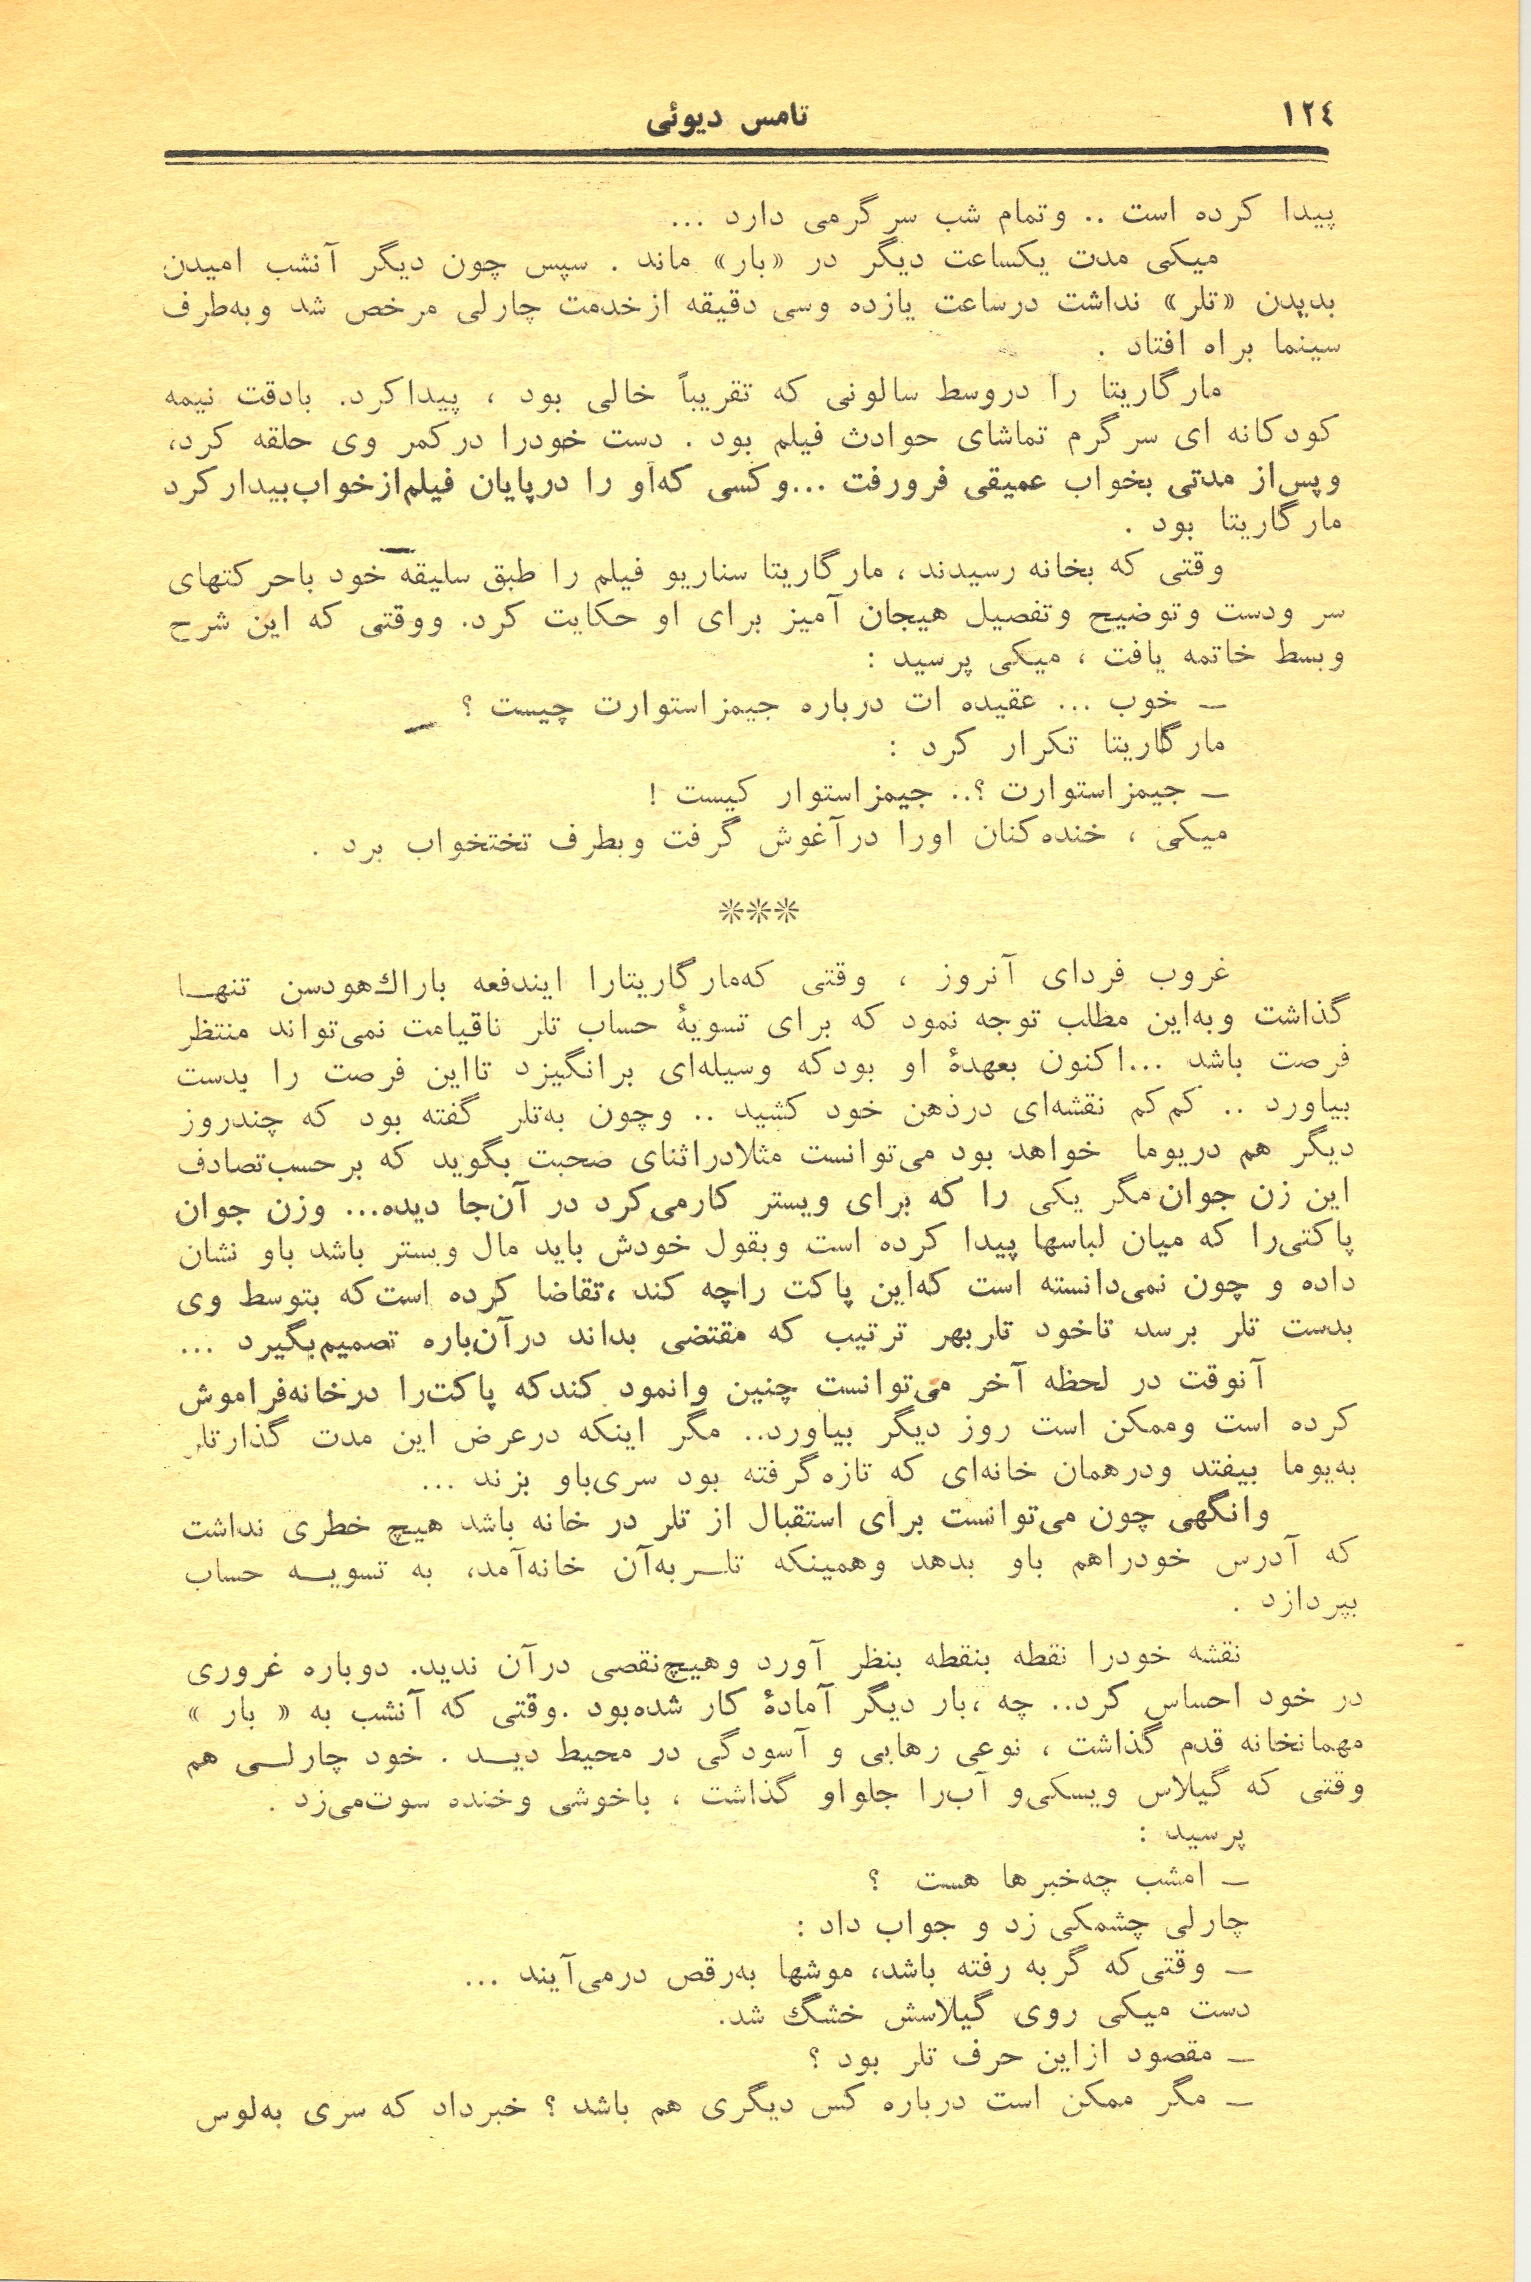 ۱۲٤
تامس دیوئی
پیدا کرده است .. وتمام شب سرگرمی دارد ...
میکی مدت یکساعت دیگر در «بار» ماند . سپس چون دیگر آنشب امیدن
بدیدن «تلر» نداشت درساعت یازده وسی دقیقه ازخدمت چارلی مرخص شد وبه‌طرف
سینما براه افتاد .
مارگاریتا را دروسط سالونی که تقریباً خالی بود ، پیداکرد. بادقت نیمه
کودکانه ای سرگرم تماشای حوادث فیلم بود . دست خودرا درکمر وی حلقه کرد،
وپس‌از مدتی بخواب عمیقی فرورفت ...وکسی که‌او را درپایان فیلم‌ازخواب‌بیدارکرد
مارگاریتا بود .
وقتی که بخانه رسیدند ، مارگاریتا سناریو فیلم را طبق سلیقه خود باحرکتهای
سر ودست وتوضیح وتفصیل هیجان آمیز برای او حکایت کرد. ووقتی که این شرح
وبسط خاتمه یافت ، میکی پرسید :
ـ خوب ... عقیده ات درباره جیمزاستوارت چیست ؟
مارگاریتا تکرار کرد :
ـ جیمزاستوارت ؟.. جیمزاستوار کیست !
میکی ، خنده‌کنان اورا درآغوش گرفت وبطرف تختخواب برد .
***
غروب فردای آنروز ، وقتی که‌مارگاریتارا ایندفعه باراك‌هودسن تنهــا
گذاشت وبه‌این مطلب توجه نمود که برای تسویهٔ حساب تلر تاقیامت نمی‌تواند منتظر
فرصت باشد ...اکنون بعهدهٔ او بودکه وسیله‌ای برانگیزد تااین فرصت را بدست
بیاورد .. کم‌کم نقشه‌ای درذهن خود کشید .. وچون به‌تلر گفته بود که چندروز
دیگر هم دریوما خواهد بود می‌توانست مثلادراثنای صحبت بگوید که برحسب‌تصادف
این زن جوان‌مگر یکی را که برای ویستر کارمی‌کرد در آن‌جا دیده... وزن جوان
پاکتی‌را که میان لباسها پیدا کرده است وبقول خودش باید مال ویستر باشد باو نشان
داده و چون نمی‌دانسته است که‌این پاکت راچه کند ،تقاضا کرده است‌که بتوسط وی
بدست تلر برسد تاخود تلربهر ترتیب که مقتضی بداند درآن‌باره تصمیم‌بگیرد ...
آنوقت در لحظه آخر می‌توانست چنین وانمود کندکه پاکت‌را درخانه‌فراموش
کرده است وممکن است روز دیگر بیاورد.. مگر اینکه درعرض این مدت گذارتلر
به‌یوما بیفتد ودرهمان خانه‌ای که تازه‌گرفته بود سری‌باو بزند ...
وانگهی چون می‌توانست برای استقبال از تلر در خانه باشد هیچ خطری نداشت
که آدرس خودراهم باو بدهد وهمینکه تلــربه‌آن خانه‌آمد، به تسویــه حساب
بپردازد .
نقشه خودرا نقطه بنقطه بنظر آورد وهیچ‌نقصی درآن ندید. دوباره غروری
در خود احساس کرد.. چه ،بار دیگر آمادهٔ کار شده‌بود .وقتی که آنشب به « بار »
مهمانخانه قدم گذاشت ، نوعی رهایی و آسودگی در محیط دیــد . خود چارلــی هم
وقتی که گیلاس ویسکی‌و آب‌را جلواو گذاشت ، باخوشی وخنده سوت‌می‌زد .
پرسید :
ـ امشب چه‌خبرها هست ؟
چارلی چشمکی زد و جواب داد :
ـ وقتی‌که گربه رفته باشد، موشها به‌رقص درمی‌آیند ...
دست میکی روی گیلاسش خشگ شد.
ـ مقصود ازاین حرف تلر بود ؟
ـ مگر ممکن است درباره کس دیگری هم باشد ؟ خبرداد که سری به‌لوس